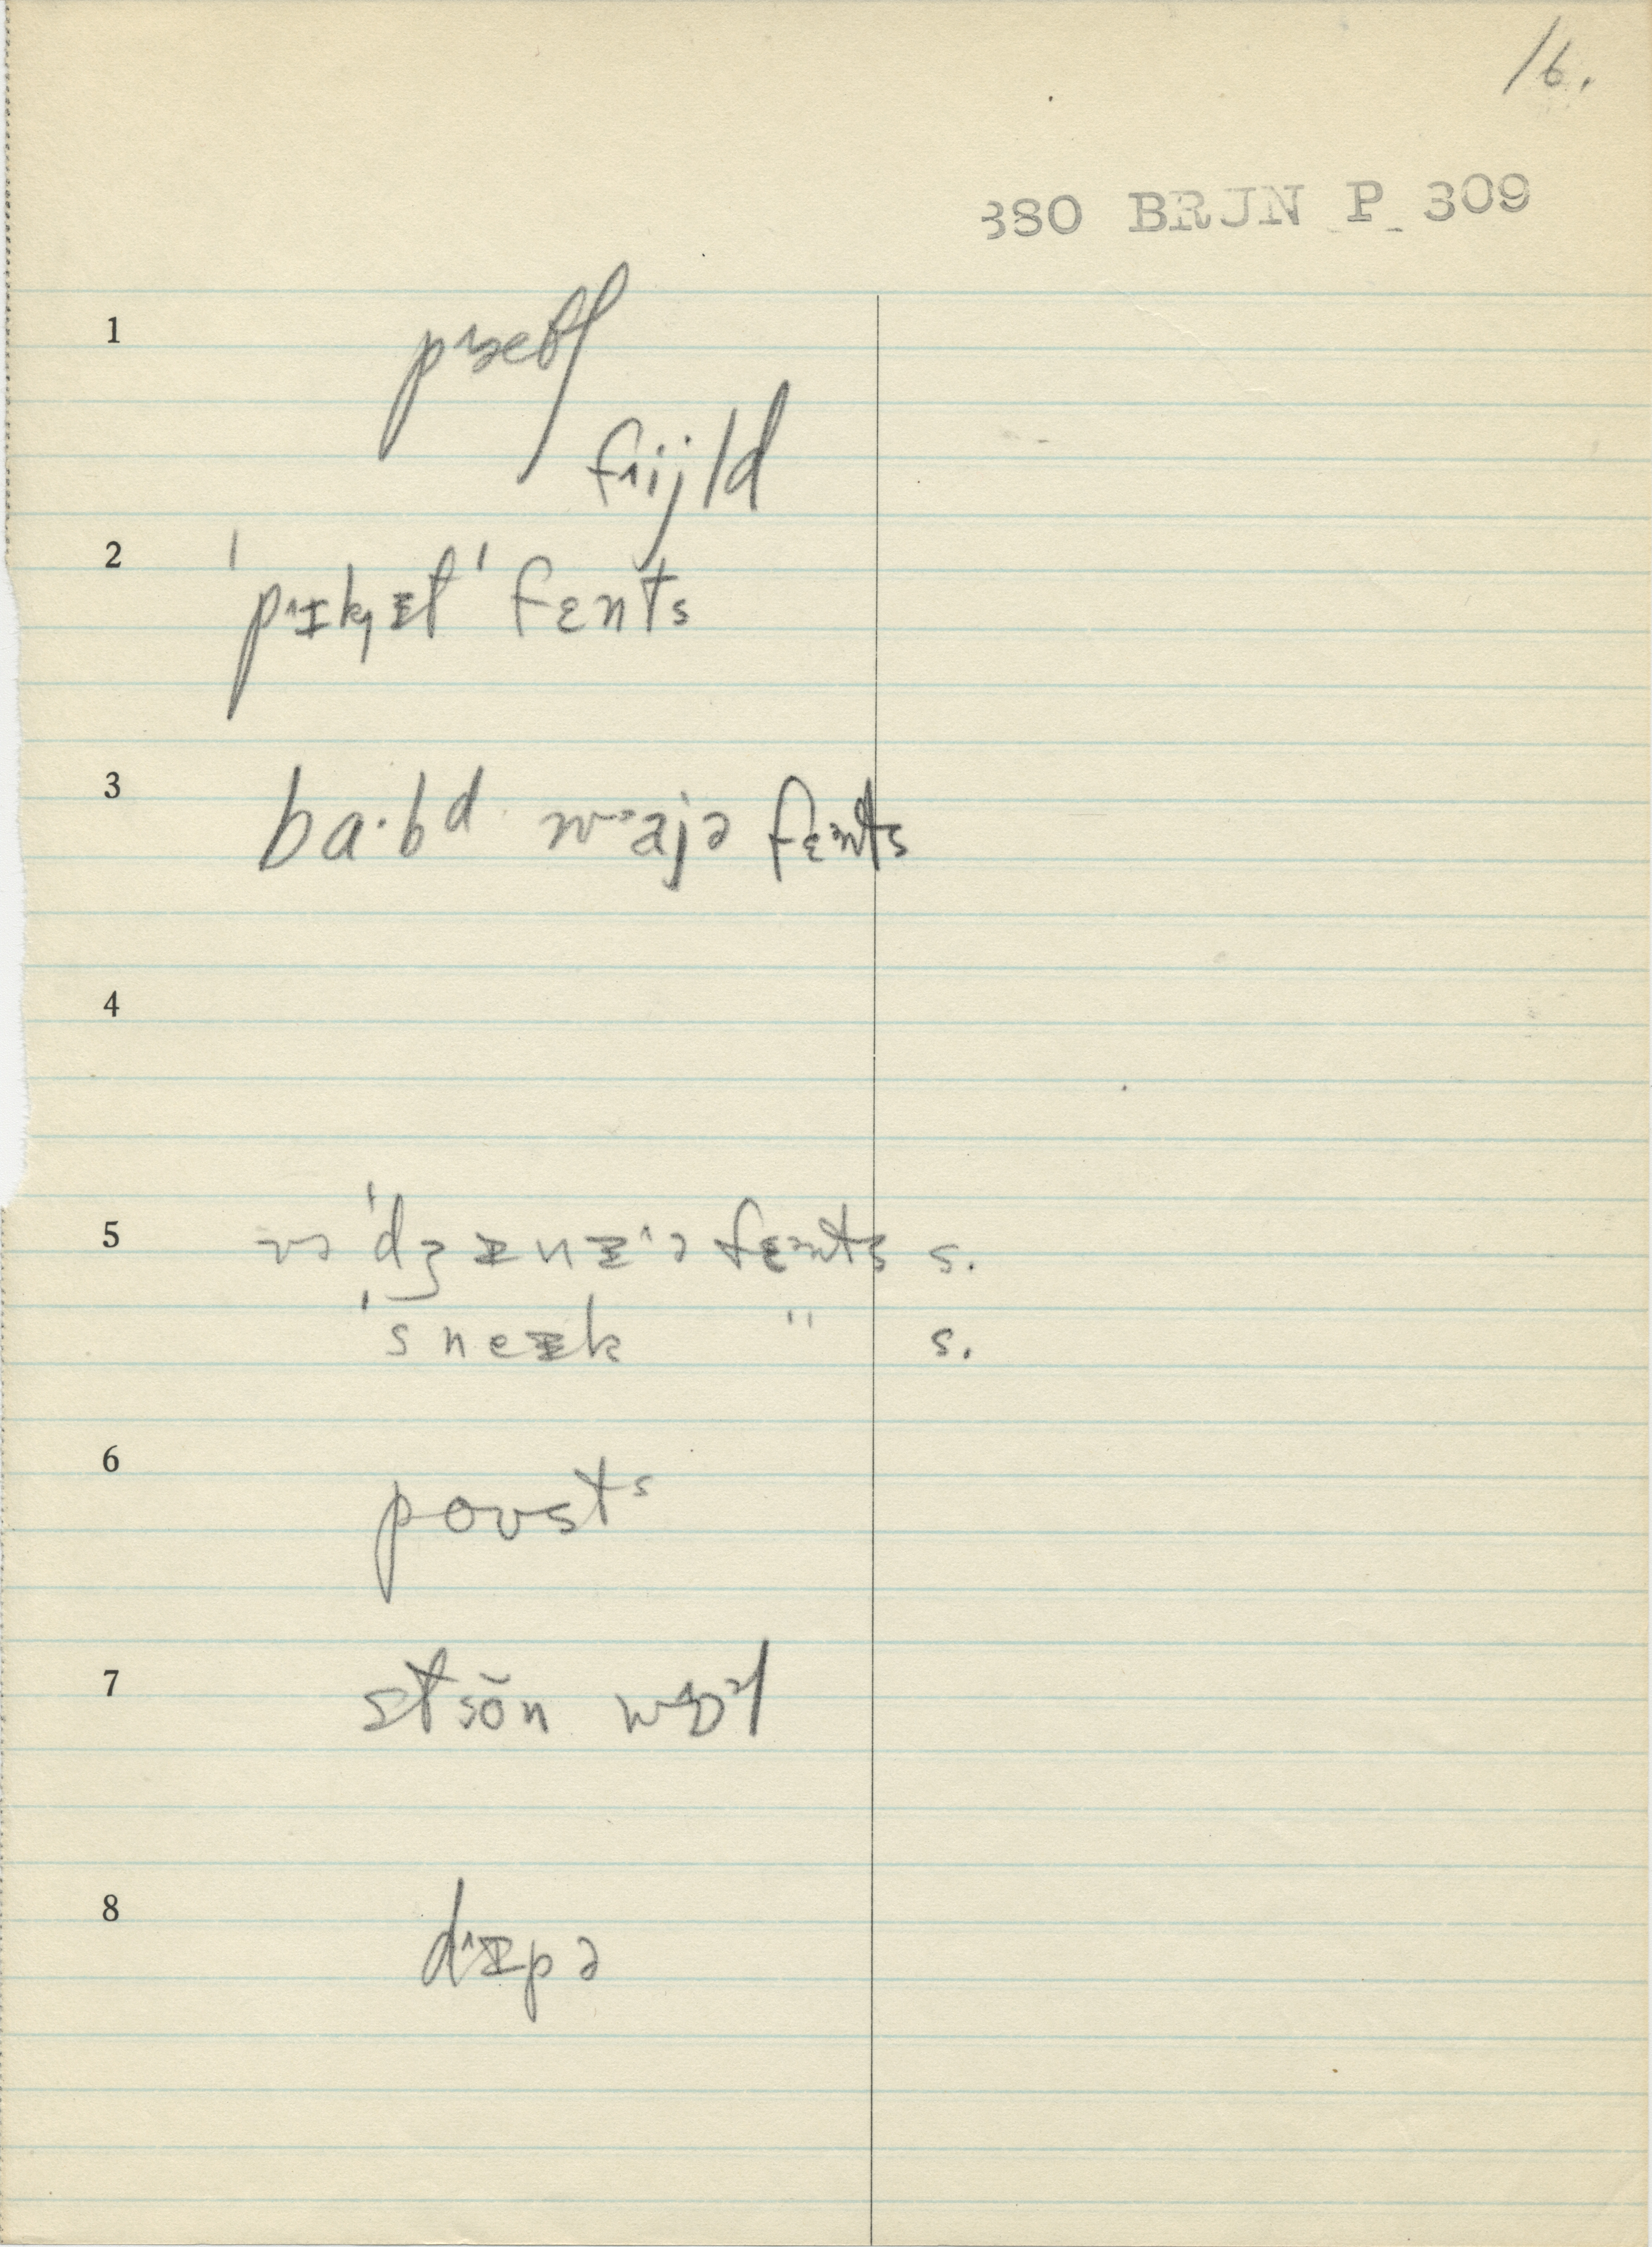 16.
380 BRJN P 309
1
fɹijld
2 ˈpɹɪkɪt ˈfɛnts
3 ba·bd waɪjə fɛnts
4
5 vəˈdʒɪnɪˑə fɛnts s.
ˈsneɪk " s.
6 poʊsts
7 stõn wɔl
8 dɹɪpə